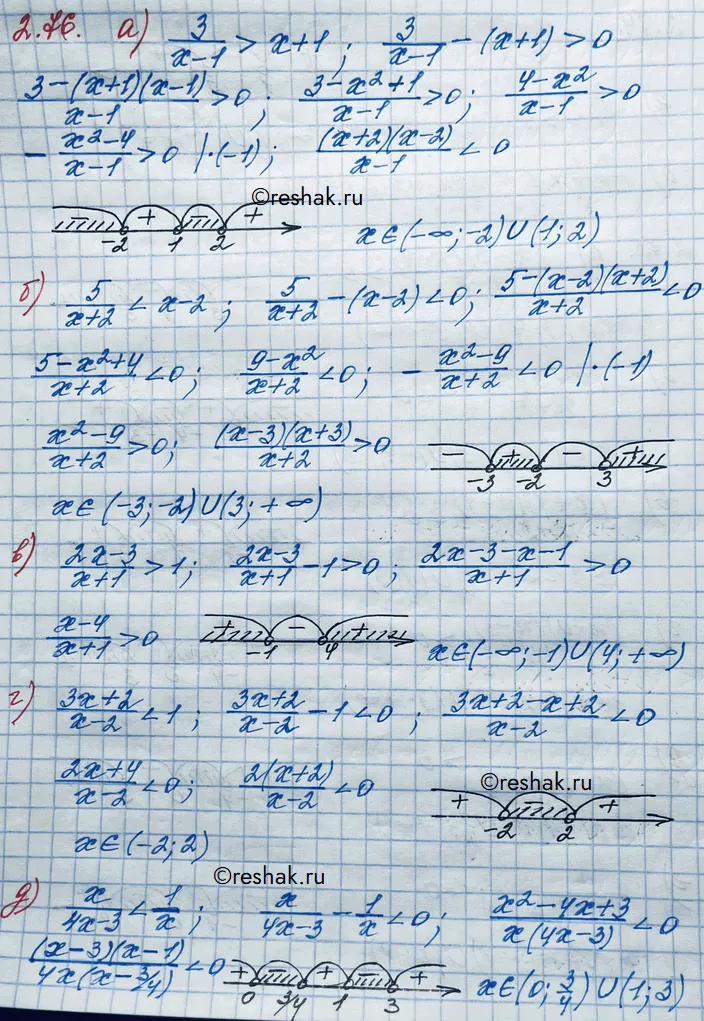 2.76. а) 3/(x-1) > x+1 ; 3/(x-1) - (x+1) > 0
(3-(x+1)(x-1))/(x-1) > 0 ; (3-x²+1)/(x-1) > 0 ; (4-x²)/(x-1) > 0
- (x²-4)/(x-1) > 0 |·(-1) ; ((x+2)(x-2))/(x-1) < 0
©reshak.ru
- + - +
-2 1 2
x∈(-∞;-2)∪(1;2)
б) 5/(x+2) < x-2 ; 5/(x+2) - (x-2) < 0 ; (5-(x-2)(x+2))/(x+2) < 0
(5-x²+4)/(x+2) < 0 ; (9-x²)/(x+2) < 0 ; - (x²-9)/(x+2) < 0 |·(-1)
(x²-9)/(x+2) > 0 ; ((x-3)(x+3))/(x+2) > 0
- + - +
-3 -2 3
x∈(-3;-2)∪(3;+∞)
в) (2x-3)/(x+1) > 1 ; (2x-3)/(x+1) - 1 > 0 ; (2x-3-x-1)/(x+1) > 0
(x-4)/(x+1) > 0
+ - +
-1 4
x∈(-∞;-1)∪(4;+∞)
г) (3x+2)/(x-2) < 1 ; (3x+2)/(x-2) - 1 < 0 ; (3x+2-x+2)/(x-2) < 0
(2x+4)/(x-2) < 0 ; (2(x+2))/(x-2) < 0
©reshak.ru
+ - +
-2 2
x∈(-2;2)
©reshak.ru
д) x/(4x-3) < 1/x ; x/(4x-3) - 1/x < 0 ; (x²-4x+3)/(x(4x-3)) < 0
((x-3)(x-1))/(4x(x-3/4)) < 0
+ - + - +
0 3/4 1 3
x∈(0;3/4)∪(1;3)